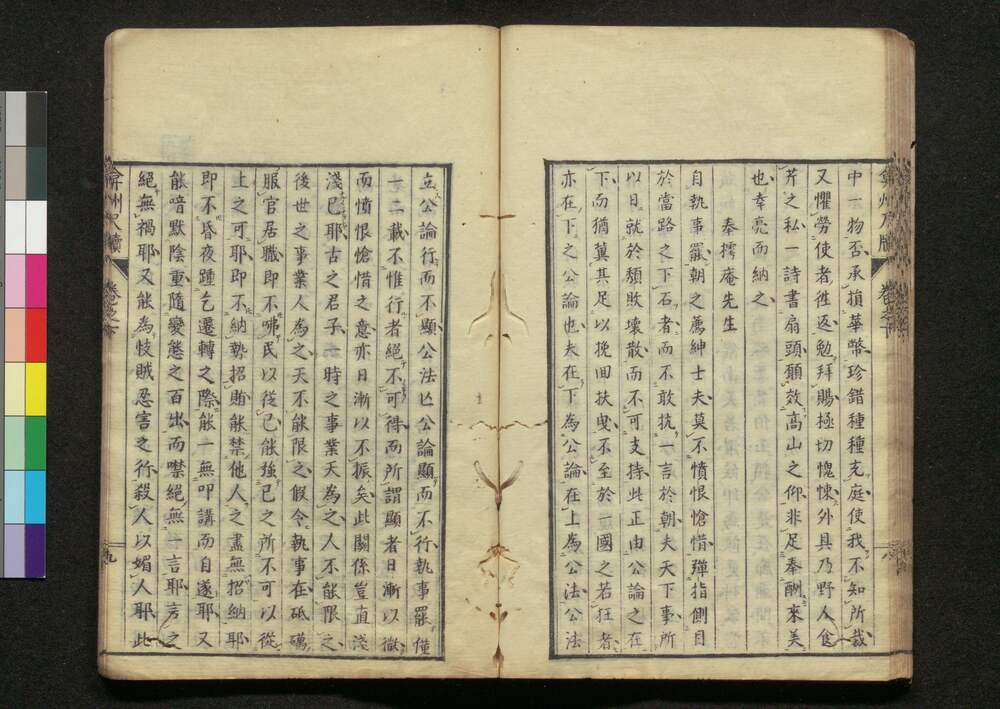 中一物否承損華幣珍錯種種充庭使我不知所裁
又懼勞使者徃返勉拜賜極切愧悚外具乃野人食
芹之私一詩書扇頭願效高山之仰非足奉酬來美
也幸亮而納之
奉樗庵先生
自執事罷朝之薦紳士夫莫不憤恨愴惜彈指側目
於當路之下石者而不敢抗一言於朝夫天下事所
以日就於頽敗壞散而不可支持此正由公論之在
下而猶冀其足以挽回扶曳不至於遺國之若狂者
亦在下之公論也夫在下為公論在上為公法公法
弇州尺牘
卷之下
八
立公論行而不顯公法亾公論顯而不行執事罷僅
一二載不惟行者絕不可得而所謂顯者日漸以微
而憤恨愴惜之意亦日漸以不振矣此關係豈直淺
淺已耶古之君子一時之事業天為之人不能限之
後世之事業人為之天不能限之假令執事在砥礪
服官居職即不咈民以從己能強己之所不可以從
上之可耶即不納勢招賄能禁他人之盡無招納耶
即不昏夜踵乞遷轉之際能一無叩講而自遂耶又
能喑默陰重隨變態之百出而噤絕無一言耶言之
絕無禍耶又能為忮賊忍害之行殺人以媚人耶此
弇州尺牘
卷之下
九